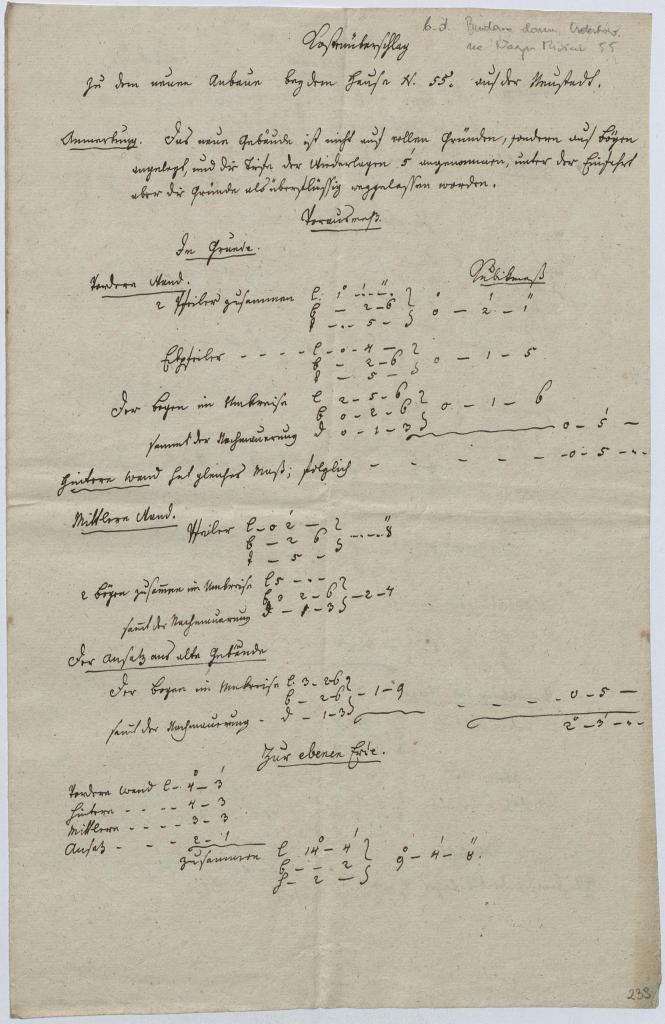 Kostenüberschlag
zu dem neuen Anbaue bey dem Hause N. 55. auf der Neustadt.
Anmerkung. Das neue Gebäude ist nicht auf vollen Gründen, sondern auf Bögen
angelegt, und die Tiefe der Wiederlagen 5' angenommen, unter der Einfahrt
aber die Gründe als überflüssig weggelassen worden.
Vorausmaß.
Im Grunde.
Kubikmaß
Vordere Wand.
2 Pfeiler zusammen l. 1° -'-"
b - 2 - 6 0 - 2 - 1
t - - 5 -
Ekpfeiler - - - - l - 0 - 4 -
b - 2 - 6 0 - 1 - 5
t - 5 -
Der Bogen im Umkreise l 2 - 5 - 6
b 0 - 2 - 6 0 - 1 - 6
sammt der Nachmauerung d 0 - 1 - 3 0 - 5 -
Hintere Wand hat gleiches Maß; folglich - - - - - 0 - 5 - -
Mittlere Wand.
Pfeiler l - 0 2 -
b - 2 6 - - 8
t - 5 -
2 Bögen zusammen im Umkreise l 5 - - -
b 0 2 - 6 - 2 - 4
sammt der Nachmauerung d - 1 - 3
Der Ansatz ans alte Gebäude
Der Bogen im Umkreise l. 3 - 2 6
b - 2 6 - 1 - 9
samt der Nachmauerung - d - 1 - 3 - - - - 0 - 5 -
2° - 3' - -
Zur ebenen Erde.
Vordere Wand l - 4° - 3'
Hintere - - - - 4 - 3
Mittlere - - - - 3 - 3
Ansatz - - - 2 - 1
zusammen l 14° - 4'
b - - 2 9° - 4' - 8".
h - 2 -
233